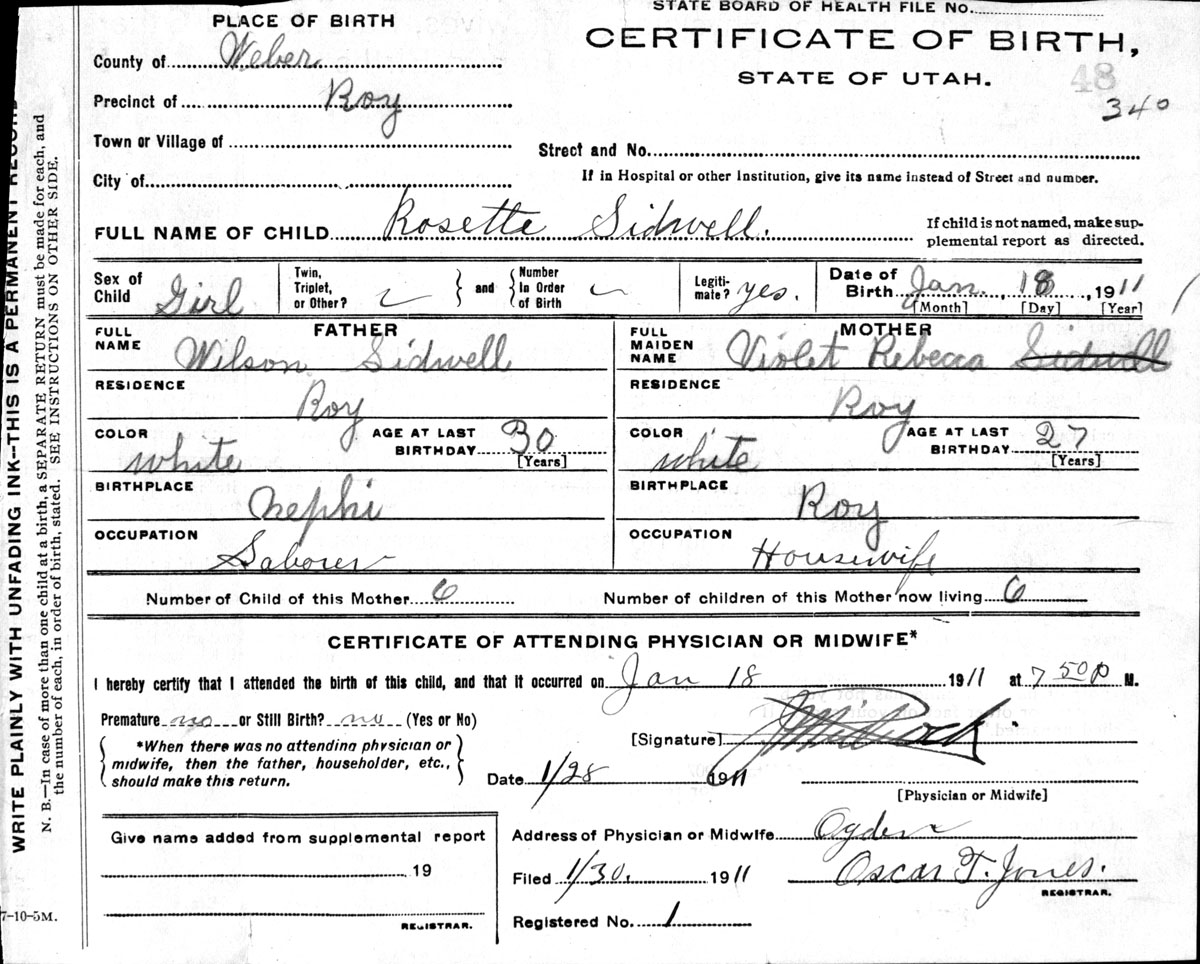 STATE BOARD OF HEALTH FILE No.
PLACE OF BIRTH
CERTIFICATE OF BIRTH,
STATE OF UTAH.
48
340
County of Weber
Precinct of Roy
Town or Village of
Street and No.
City of
If in Hospital or other Institution, give its name instead of Street and number.
FULL NAME OF CHILD Rosette Sidwell.
If child is not named, make sup-
plemental report as directed.
Sex of Child Girl
Twin, Triplet, or Other?
and
Number In Order of Birth
Legiti-mate? yes.
Date of Birth Jan. 18, 1911
[Month] [Day] [Year]
FATHER
FULL NAME Wilson Sidwell
RESIDENCE Roy
COLOR white
AGE AT LAST BIRTHDAY 30 [Years]
BIRTHPLACE Nephi
OCCUPATION Laborer
MOTHER
FULL MAIDEN NAME Violet Rebecca Sidwell
RESIDENCE Roy
COLOR white
AGE AT LAST BIRTHDAY 27 [Years]
BIRTHPLACE Roy
OCCUPATION Housewife
Number of Child of this Mother 6
Number of children of this Mother now living 6
CERTIFICATE OF ATTENDING PHYSICIAN OR MIDWIFE*
I hereby certify that I attended the birth of this child, and that it occurred on Jan 18 1911 at 7 50 p M.
Premature no or Still Birth? no (Yes or No)
*When there was no attending physician or
midwife, then the father, householder, etc.,
should make this return.
[Signature]
Date 1/28 1911
[Physician or Midwife]
Give name added from supplemental report
19
REGISTRAR.
Address of Physician or Midwife Ogden
Filed 1/30. 1911 Oscar T. Jones.
REGISTRAR.
Registered No. 1
7-10-5M.
WRITE PLAINLY WITH UNFADING INK--THIS IS A PERMANENT RECORD
N. B.—In case of more than one child at a birth, a SEPARATE RETURN must be made for each, and
the number of each, in order of birth, stated. SEE INSTRUCTIONS ON OTHER SIDE.